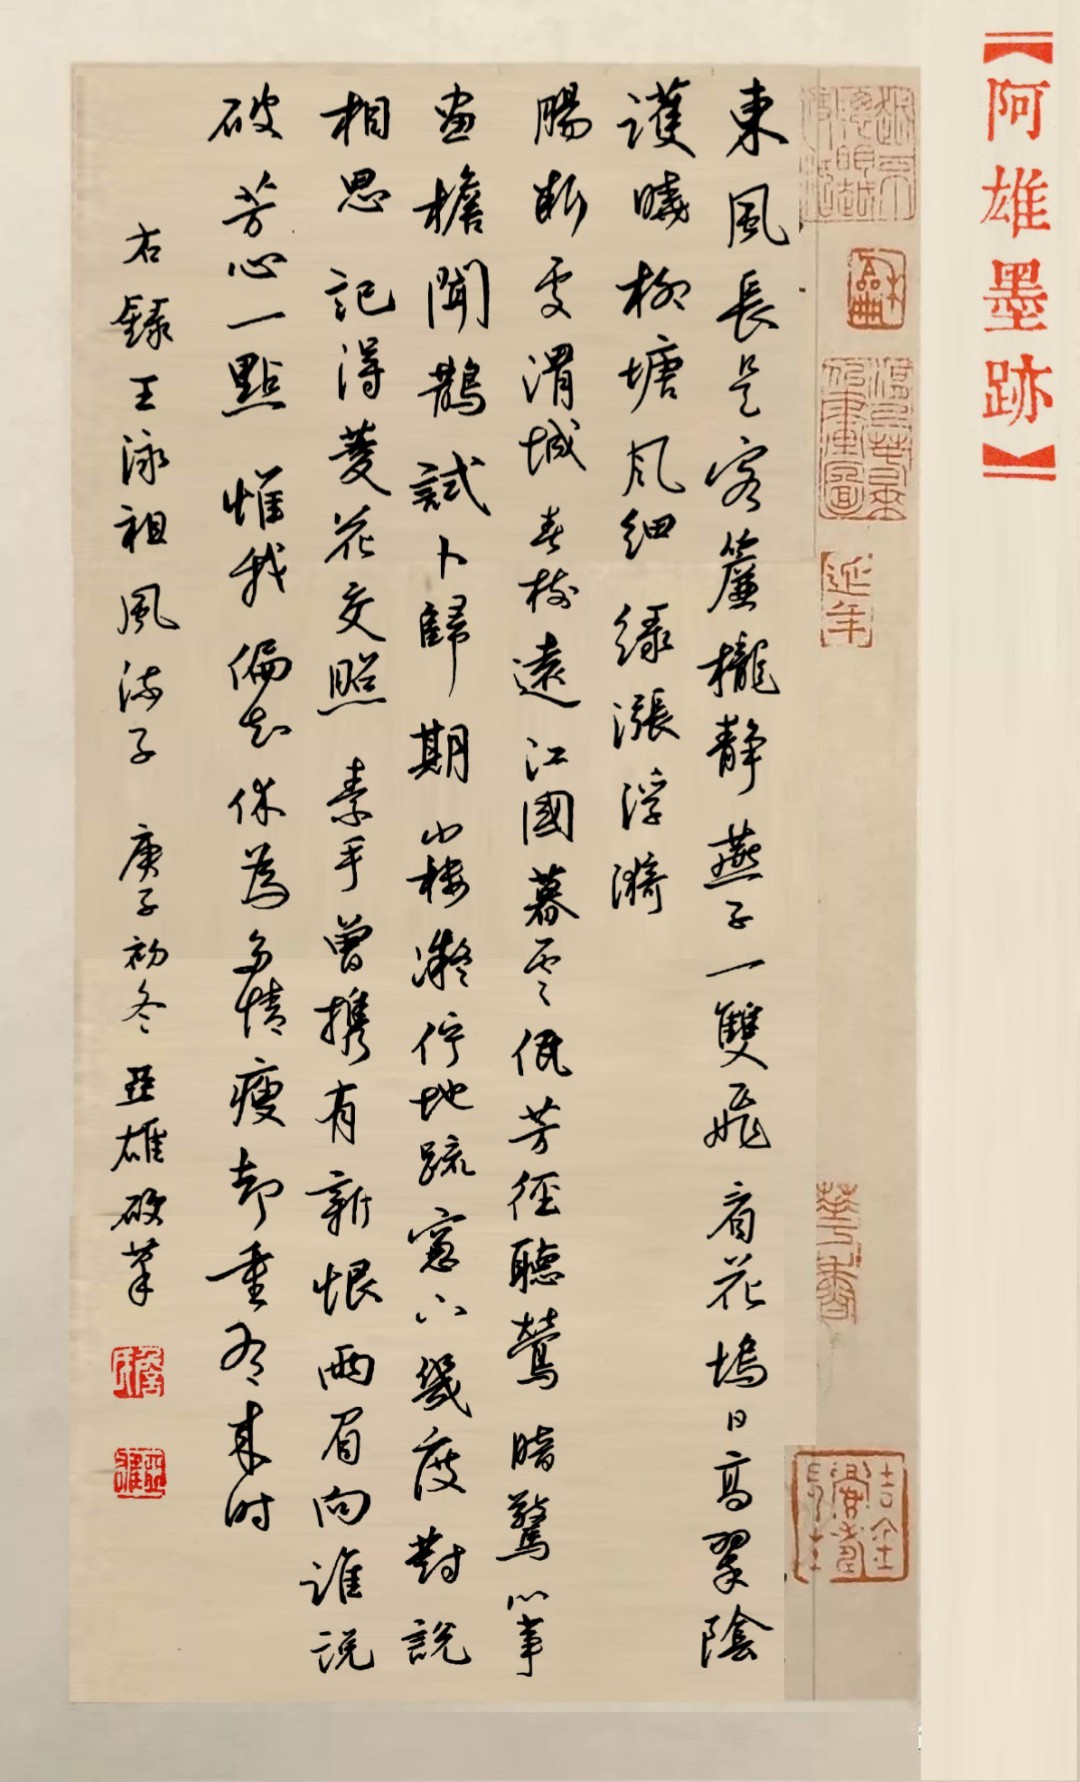 【阿雄墨跡】
東風長是客簾櫳靜燕子一雙飛看花塢日高翠陰
護曉柳塘風細綠漲浮漪
腸斷處渭城春樹遠江國暮雲低芳徑聽鶯暗驚心事
畫檐聞鵲試卜歸期小樓凝佇地疏窗下幾度對說
相思記得菱花交照素手曾攜有新恨兩眉向誰説
破芳心一點惟我偏知休為多情瘦却重有來时
右録王泳祖風流子 庚子初冬亞雄筆
延年
亞雄